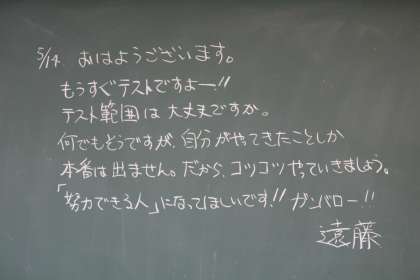 5/14 おはようございます。
もうすぐテストですよー!!
テスト範囲は大丈夫ですか。
何でもそうですが、自分がやってきたことしか
本番は出ません。だから、コツコツやっていきましょう。
「努力できる人」になってほしいです!! ガンバロー!!
遠藤